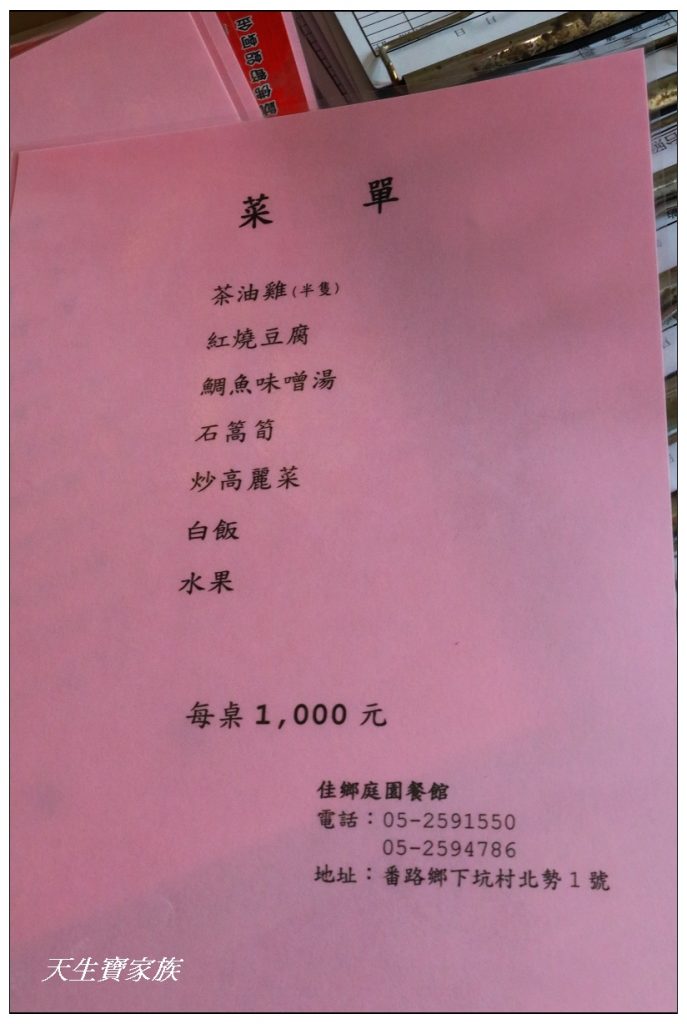 菜 單
茶油雞(半隻)
紅燒豆腐
鯛魚味噌湯
石篙筍
炒高麗菜
白飯
水果
每桌 1,000 元
佳鄉庭園餐館
電話：05-2591550
05-2594786
地址：番路鄉下坑村北勢 1 號
天生寶家族